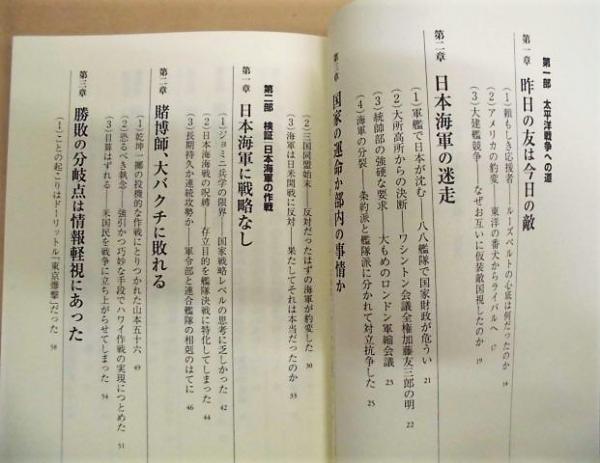 第一部 太平洋戦争への道
第一章 昨日の友は今日の敵
(1)頼もしき応援者——ルーズベルトの心底は何だったのか 14
(2)アメリカの豹変——東洋の番犬からライバルへ 17
(3)大建艦競争——なぜお互いに仮装敵国視したのか 19
第二章 日本海軍の迷走
(1)軍艦で日本が沈む——八八艦隊で国家財政が危うい 21
(2)大所高所からの決断——ワシントン会議全権加藤友三郎の明 22
(3)統帥部の強硬な要求——大もめのロンドン軍縮会議 23
(4)海軍の分裂——条約派と艦隊派に分かれて対立抗争した 25
第三章 国家の運命か部内の事情か
(2)三国同盟始末——反対だったはずの海軍が豹変した 30
(3)海軍は日米開戦に反対——果たしてそれは本当だったのか 33
第二部 検証・日本海軍の作戦
第一章 日本海軍に戦略なし
(1)ジョミニ兵学の限界——国家戦略レベルの思考に乏しかった 42
(2)日本海海戦の呪縛——存立目的を艦隊決戦に特化してしまった 44
(3)長期持久か連続攻勢か——軍令部と連合艦隊の相剋のはてに 46
第二章 賭博師、大バクチに敗れる
(1)乾坤一擲の投機的な作戦にとりつかれた山本五十六 49
(2)恐るべき執念——強引かつ巧妙な手段でハワイ作戦の実現につとめた 51
(3)目算はずれる——米国民を戦争に立ち上がらせてしまった 54
第三章 勝敗の分岐点は情報軽視にあった
(1)ことの起こりはドーリットル「東京爆撃」だった 58